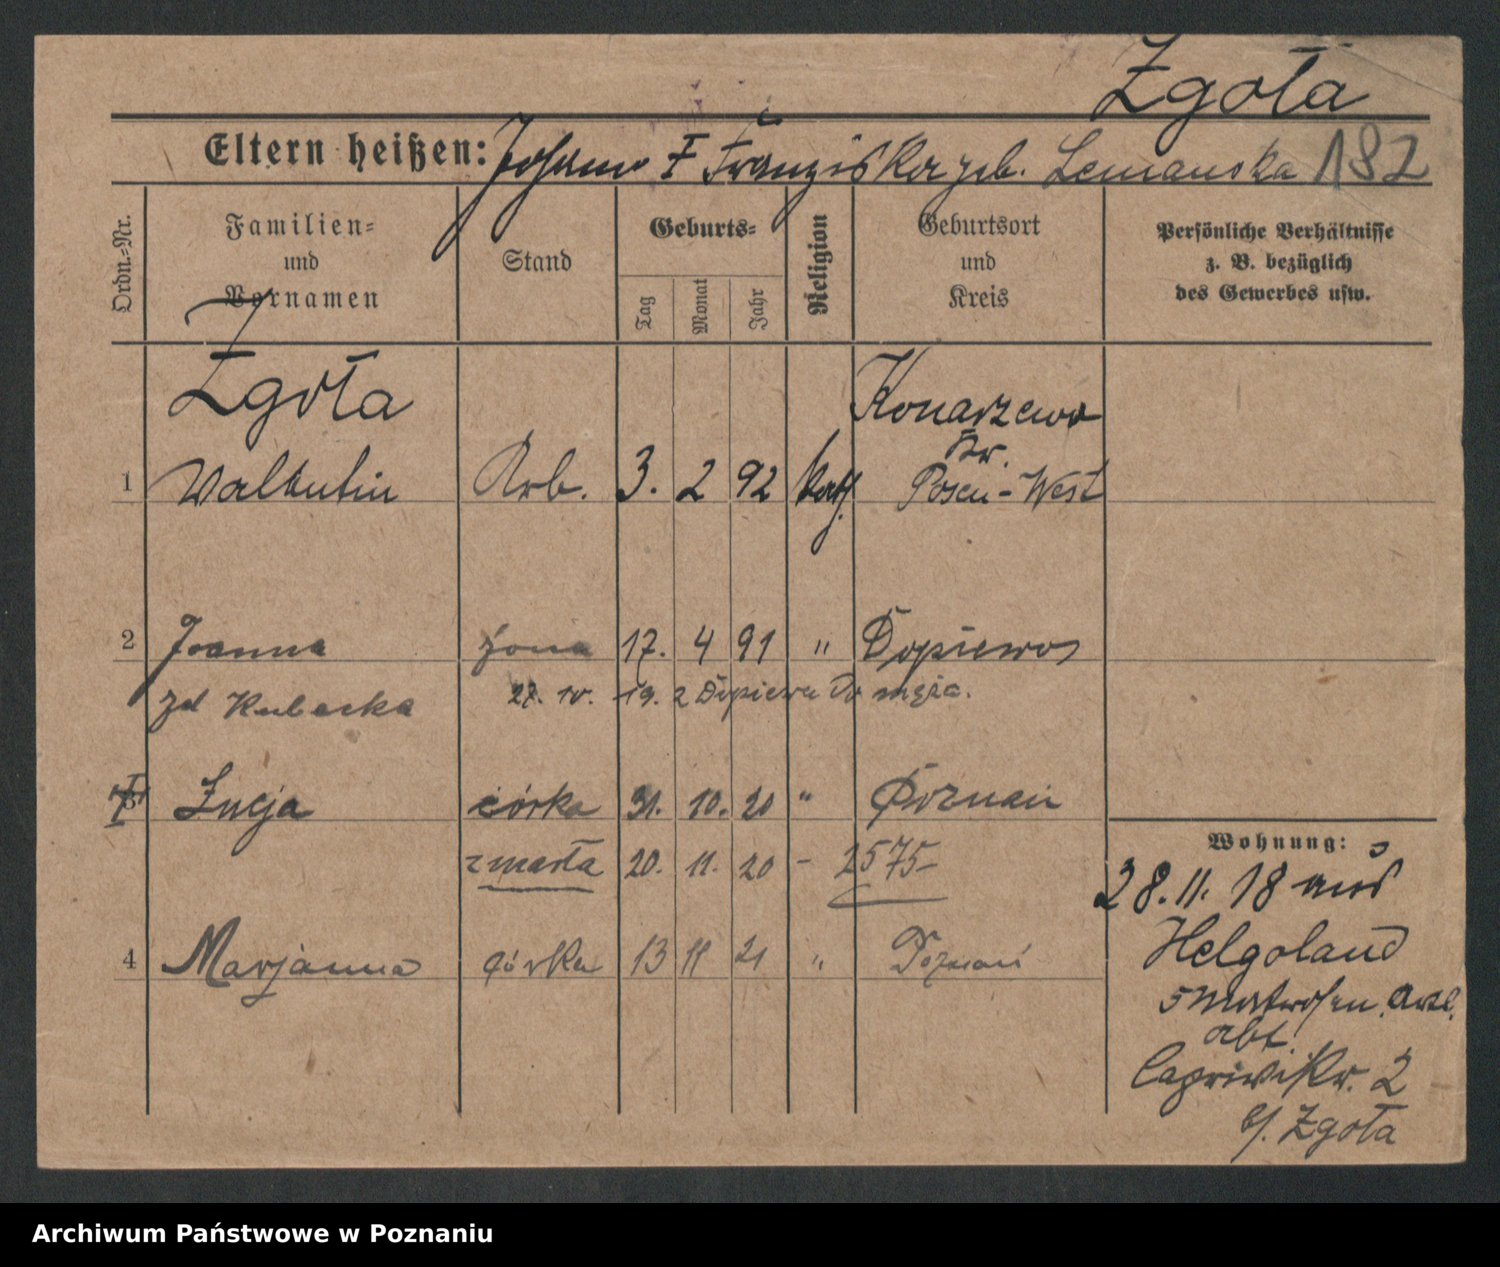 Zgoła
Eltern heißen: Johann I Franziska geb. Lemanska 182
Ordn.-Nr.
Familien-
und
Vornamen
Stand
Geburts-
Tag
Monat
Jahr
Religion
Geburtsort
und
Kreis
Persönliche Verhältnisse
z. B. bezüglich
des Gewerbes usw.
Zgoła Konarzewo
Kr.
1 Valentin Arb. 3. 2 92 kath. Posen-West
2 Joanna żona 17. 4 91 " Dopiewo
zd Kubacka 27. 10. 19. z Dopiewa do męża.
3 Łucja córka 31. 10. 20 " Poznań
zmarła 20. 11. 20 - 2575-
4 Marjanna córka 13 11 21 " Poznań
Wohnung:
28. 11. 18 aus
Helgoland
5 Matrosen. Artl.
abt.
Caprivistr. 2
b/. Zgoła
Archiwum Państwowe w Poznaniu